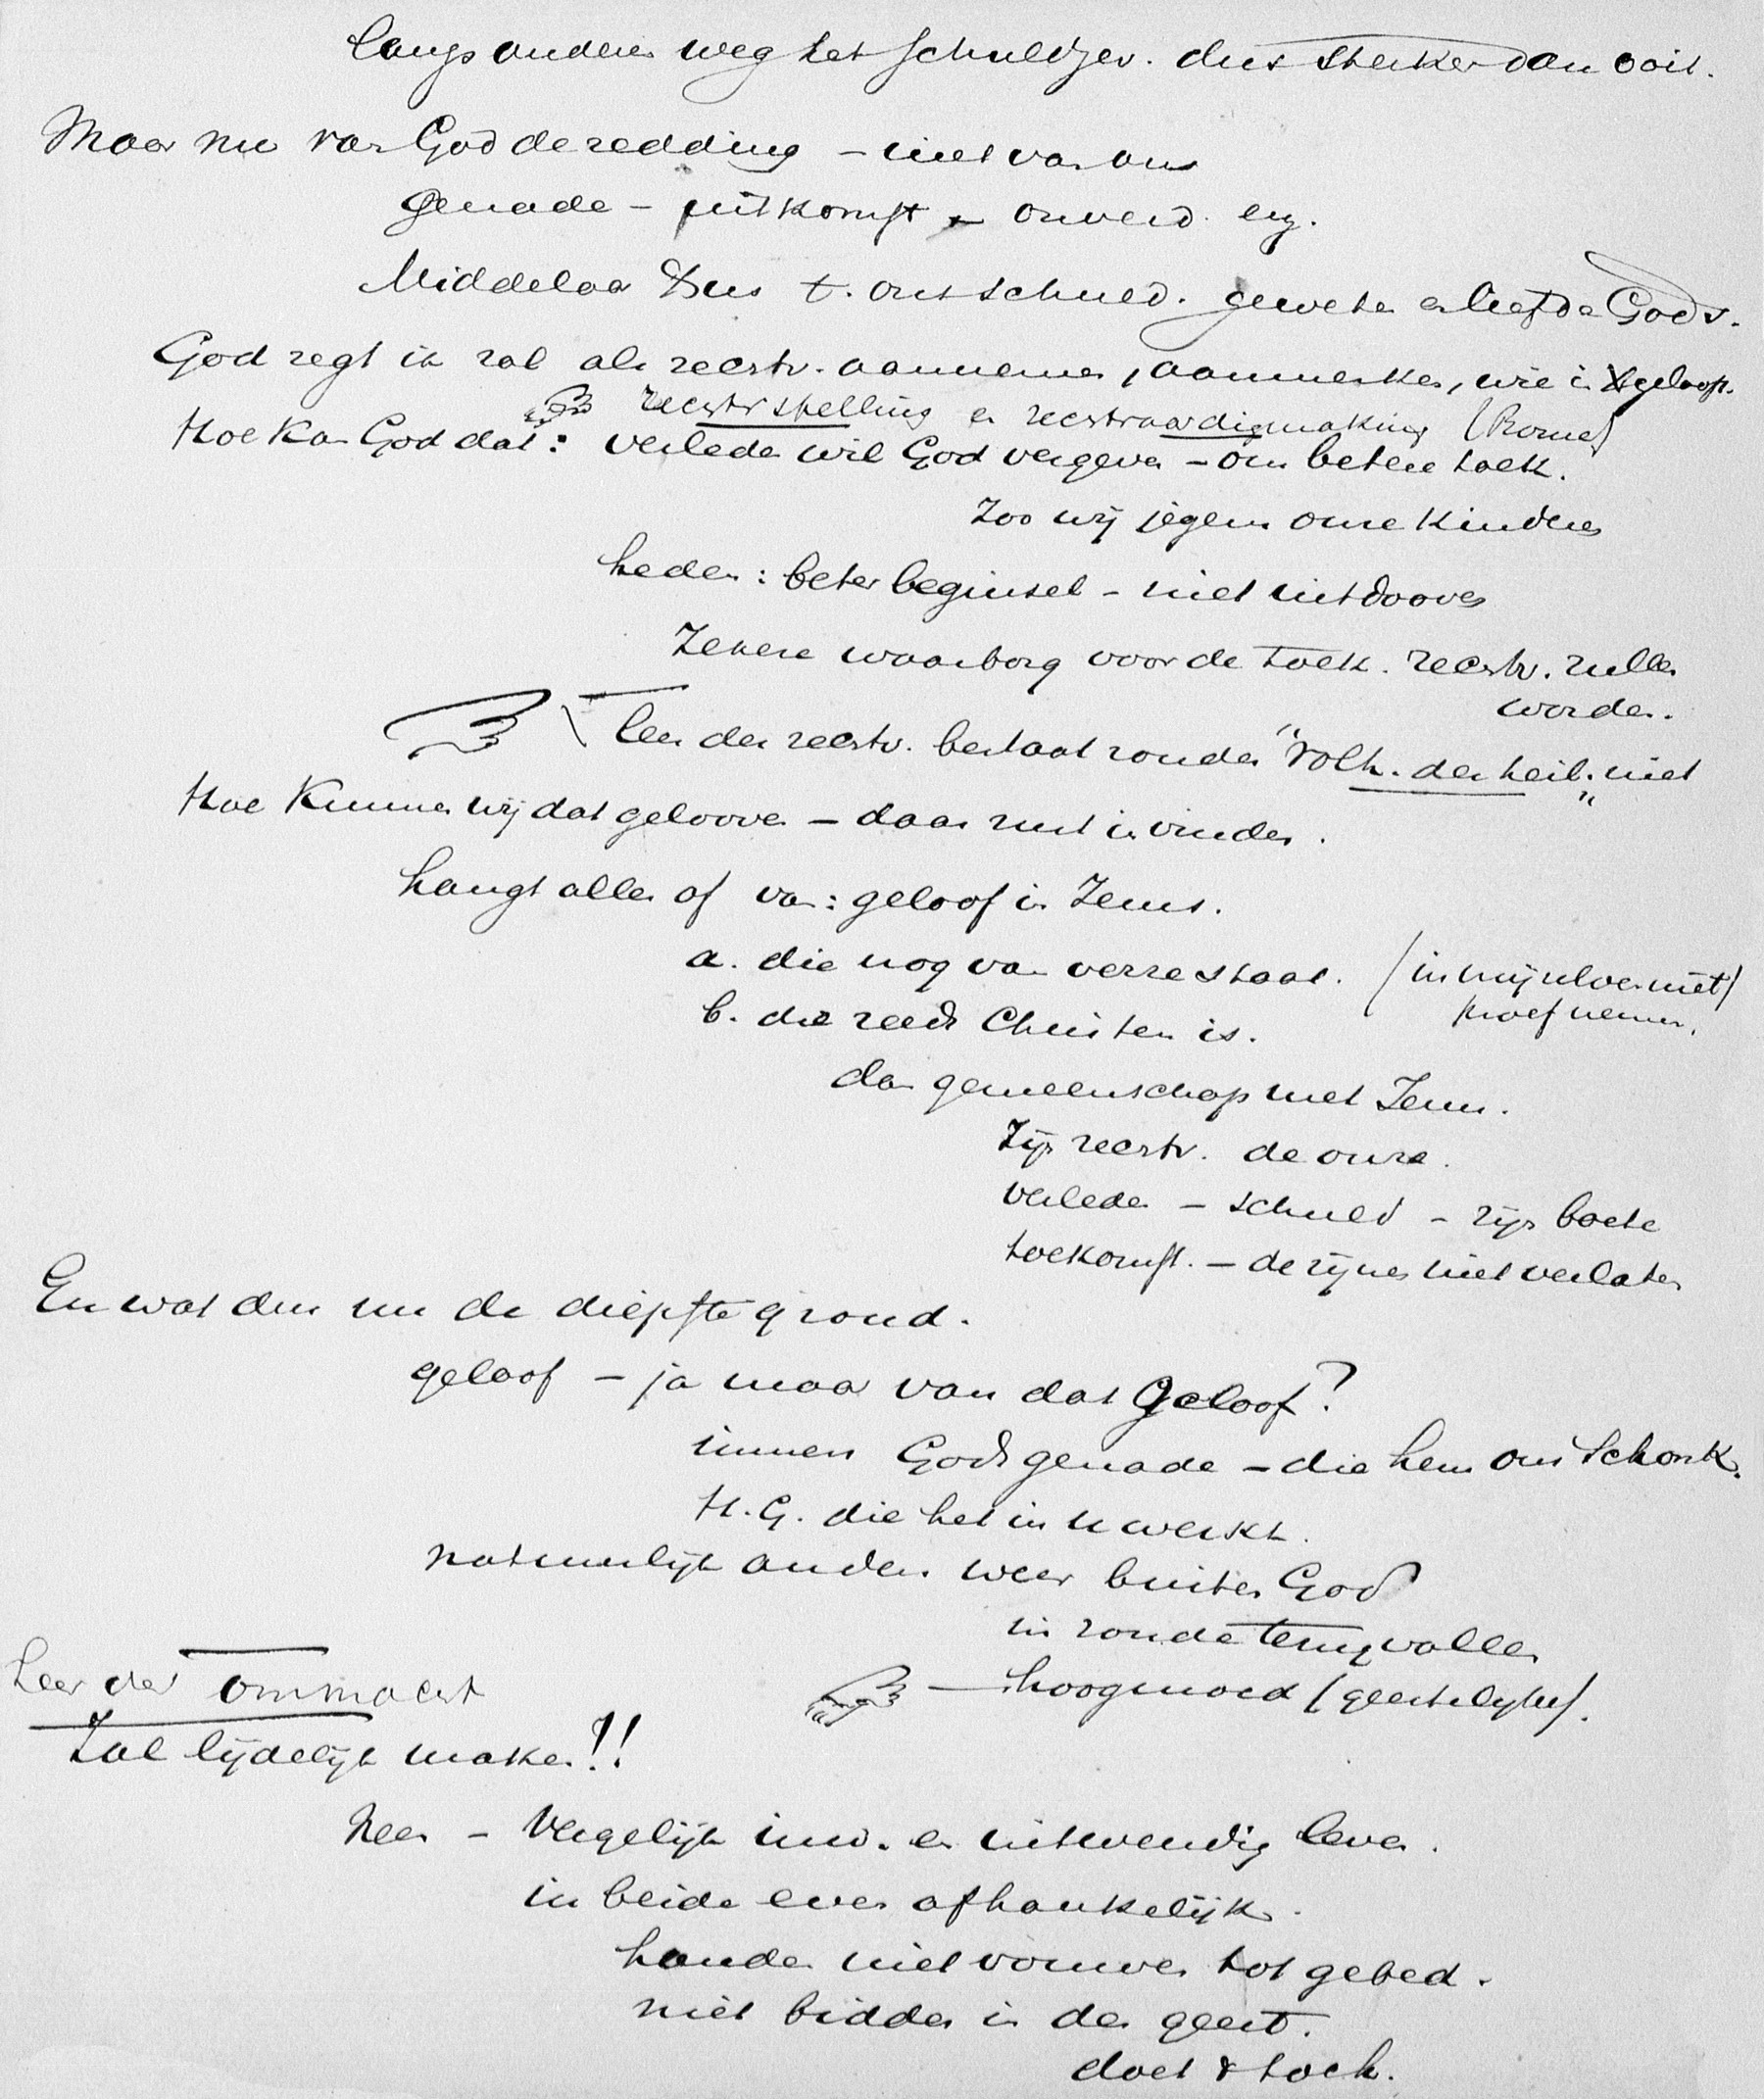 langs anderen weg het schuldgev. dus sterker dan ooit.
Maar nu van God de redding – niet van ons
genade – uitkomst – onverd. erg.
Middelaar dus t. ons schuld. geweten en liefde Gods.
God zegt ik zal als rechtv. aannemen, aanmerken, wie in X gelooft.
rechtv stelling en rechtvaardigmaking (Rome)
Hoe kan God dat: verleden wil God vergeven – om betere toek.
Zoo wij jegens onze kinderen
heden: beter beginsel – niet uitdooven
Zekere waarborg voor de toek. rechtv. zullen
worden.
leer der rechtv. bestaat zonder "volh. der heil." niet
Hoe kunnen wij dat gelooven – daar rust in vinden.
hangt alles af van: geloof in Jezus.
a. die nog van verre staat. (in mijzelven niet)
proef nemen.
b. die reeds Christen is.
dan gemeenschap met Jezus.
Zijn rechtv. de onze.
verleden – schuld – zijn boete
toekomst. – de zijnen niet verlaten
En wat dus nu de diepste grond.
geloof – ja maar van dat Geloof?
immers Gods genade – die hem ons schonk.
H.G. die het in u werkt.
natuurlijk anders weer buiten God
in zonde terugvallen
hoogmoed (geestelijke).
Leer der onmacht
Zal lijdelijk maken!!
Neen – Vergelijk inw. en uitwendig leven.
in beide even afhankelijk.
handen niet vouwen tot gebed.
niet bidden in den geest.
doet & toch.